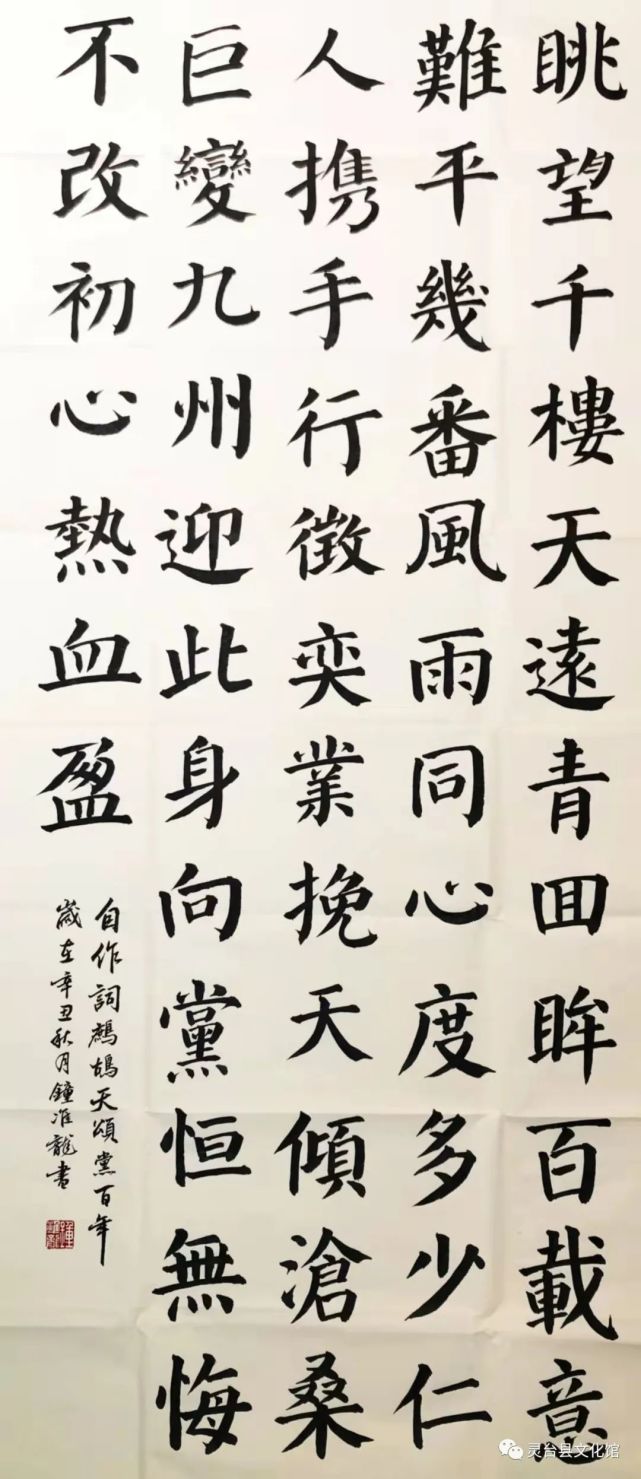 眺望千樓天遠青回眸百載意
難平幾番風雨同心度多少仁
人携手行徵奕業挽天傾滄桑
巨變九州迎此身向黨恒無悔
不改初心熱血盈
自作詞鷓鴣天頌黨百年
歲在辛丑秋月鐘准龍書
灵台县文化馆